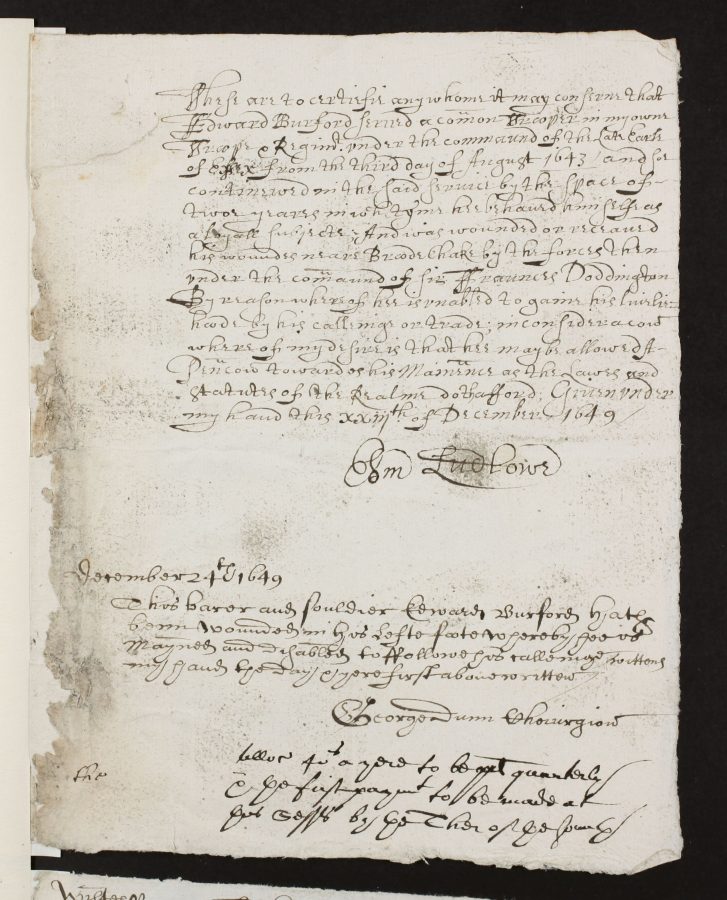 These are to certifie any whome it may conserne that
Edward Burford served a com̄on Trooper in my owne
Troope & Regimt. under the commaund of the Late Earle
of Essex from the third day of August 1643 / and soe
continewed in the said service by the space of
twoe yeares in wch tyme hee behaued himselfe as
a loyall subiecte: And was wounded or receaued
his woundes neare Broade Chalke by the forces then
under the com̄aund of Sir Ffraunces Doddington
By reason whereof hee is unabled to gaine his liuelie
hoode by his callinge or trade, in consideracon
whereof my desire is that hee may be allowed A
Pencōn towardes his Maineñce as the Lawes and
Statutes of the Realme doth afford, Given under
my hand this xxiijth of December 1649 /
Edm Ludlowe
December 24th 1649
This barer and souldier Edward Burford hath
beinn wounded in his Lefte foote whereby hee is
Maymed and disabled to ffollowe his callenige written
my hand the day & yere first above written
George Dunn Chirurgion
the
Alloc 40s a yere to be pd quarterly
& the first paymt to be made at
this Sess by the Trer of the South
Wiltes